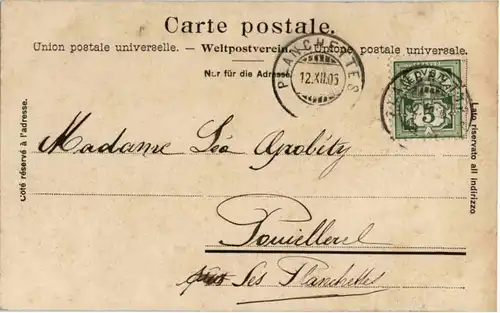 Carte postale.
Union postale universelle. — Weltpostverein. — Unione postale universale.
Nur für die Adresse.
PLANCHETTES
12.XII.05
5
Côté réservé à l'adresse.
Lato riservato all indirizzo
Madame Léa
Pouillerel
Les Planchettes